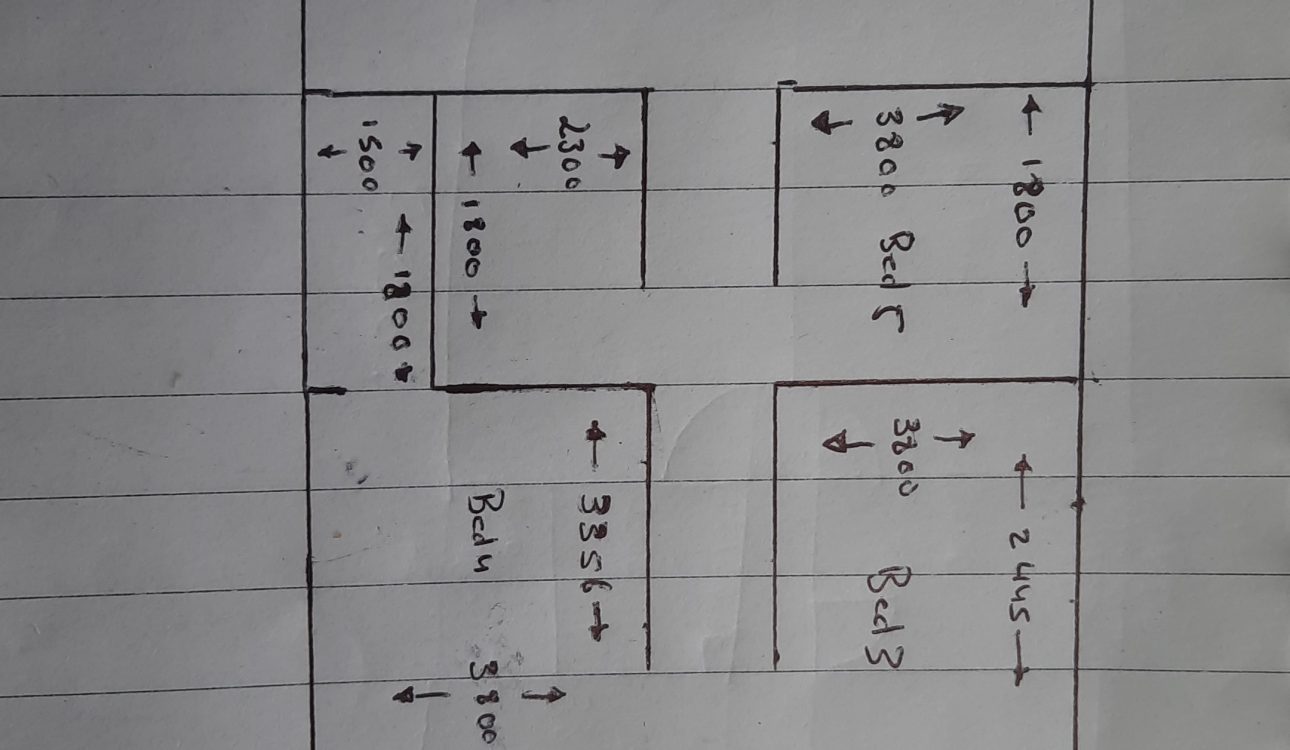 1800
2445
3800 Bed 5
3800 Bed 3
2300
3356
1800
Bed 4
3800
1800
1500